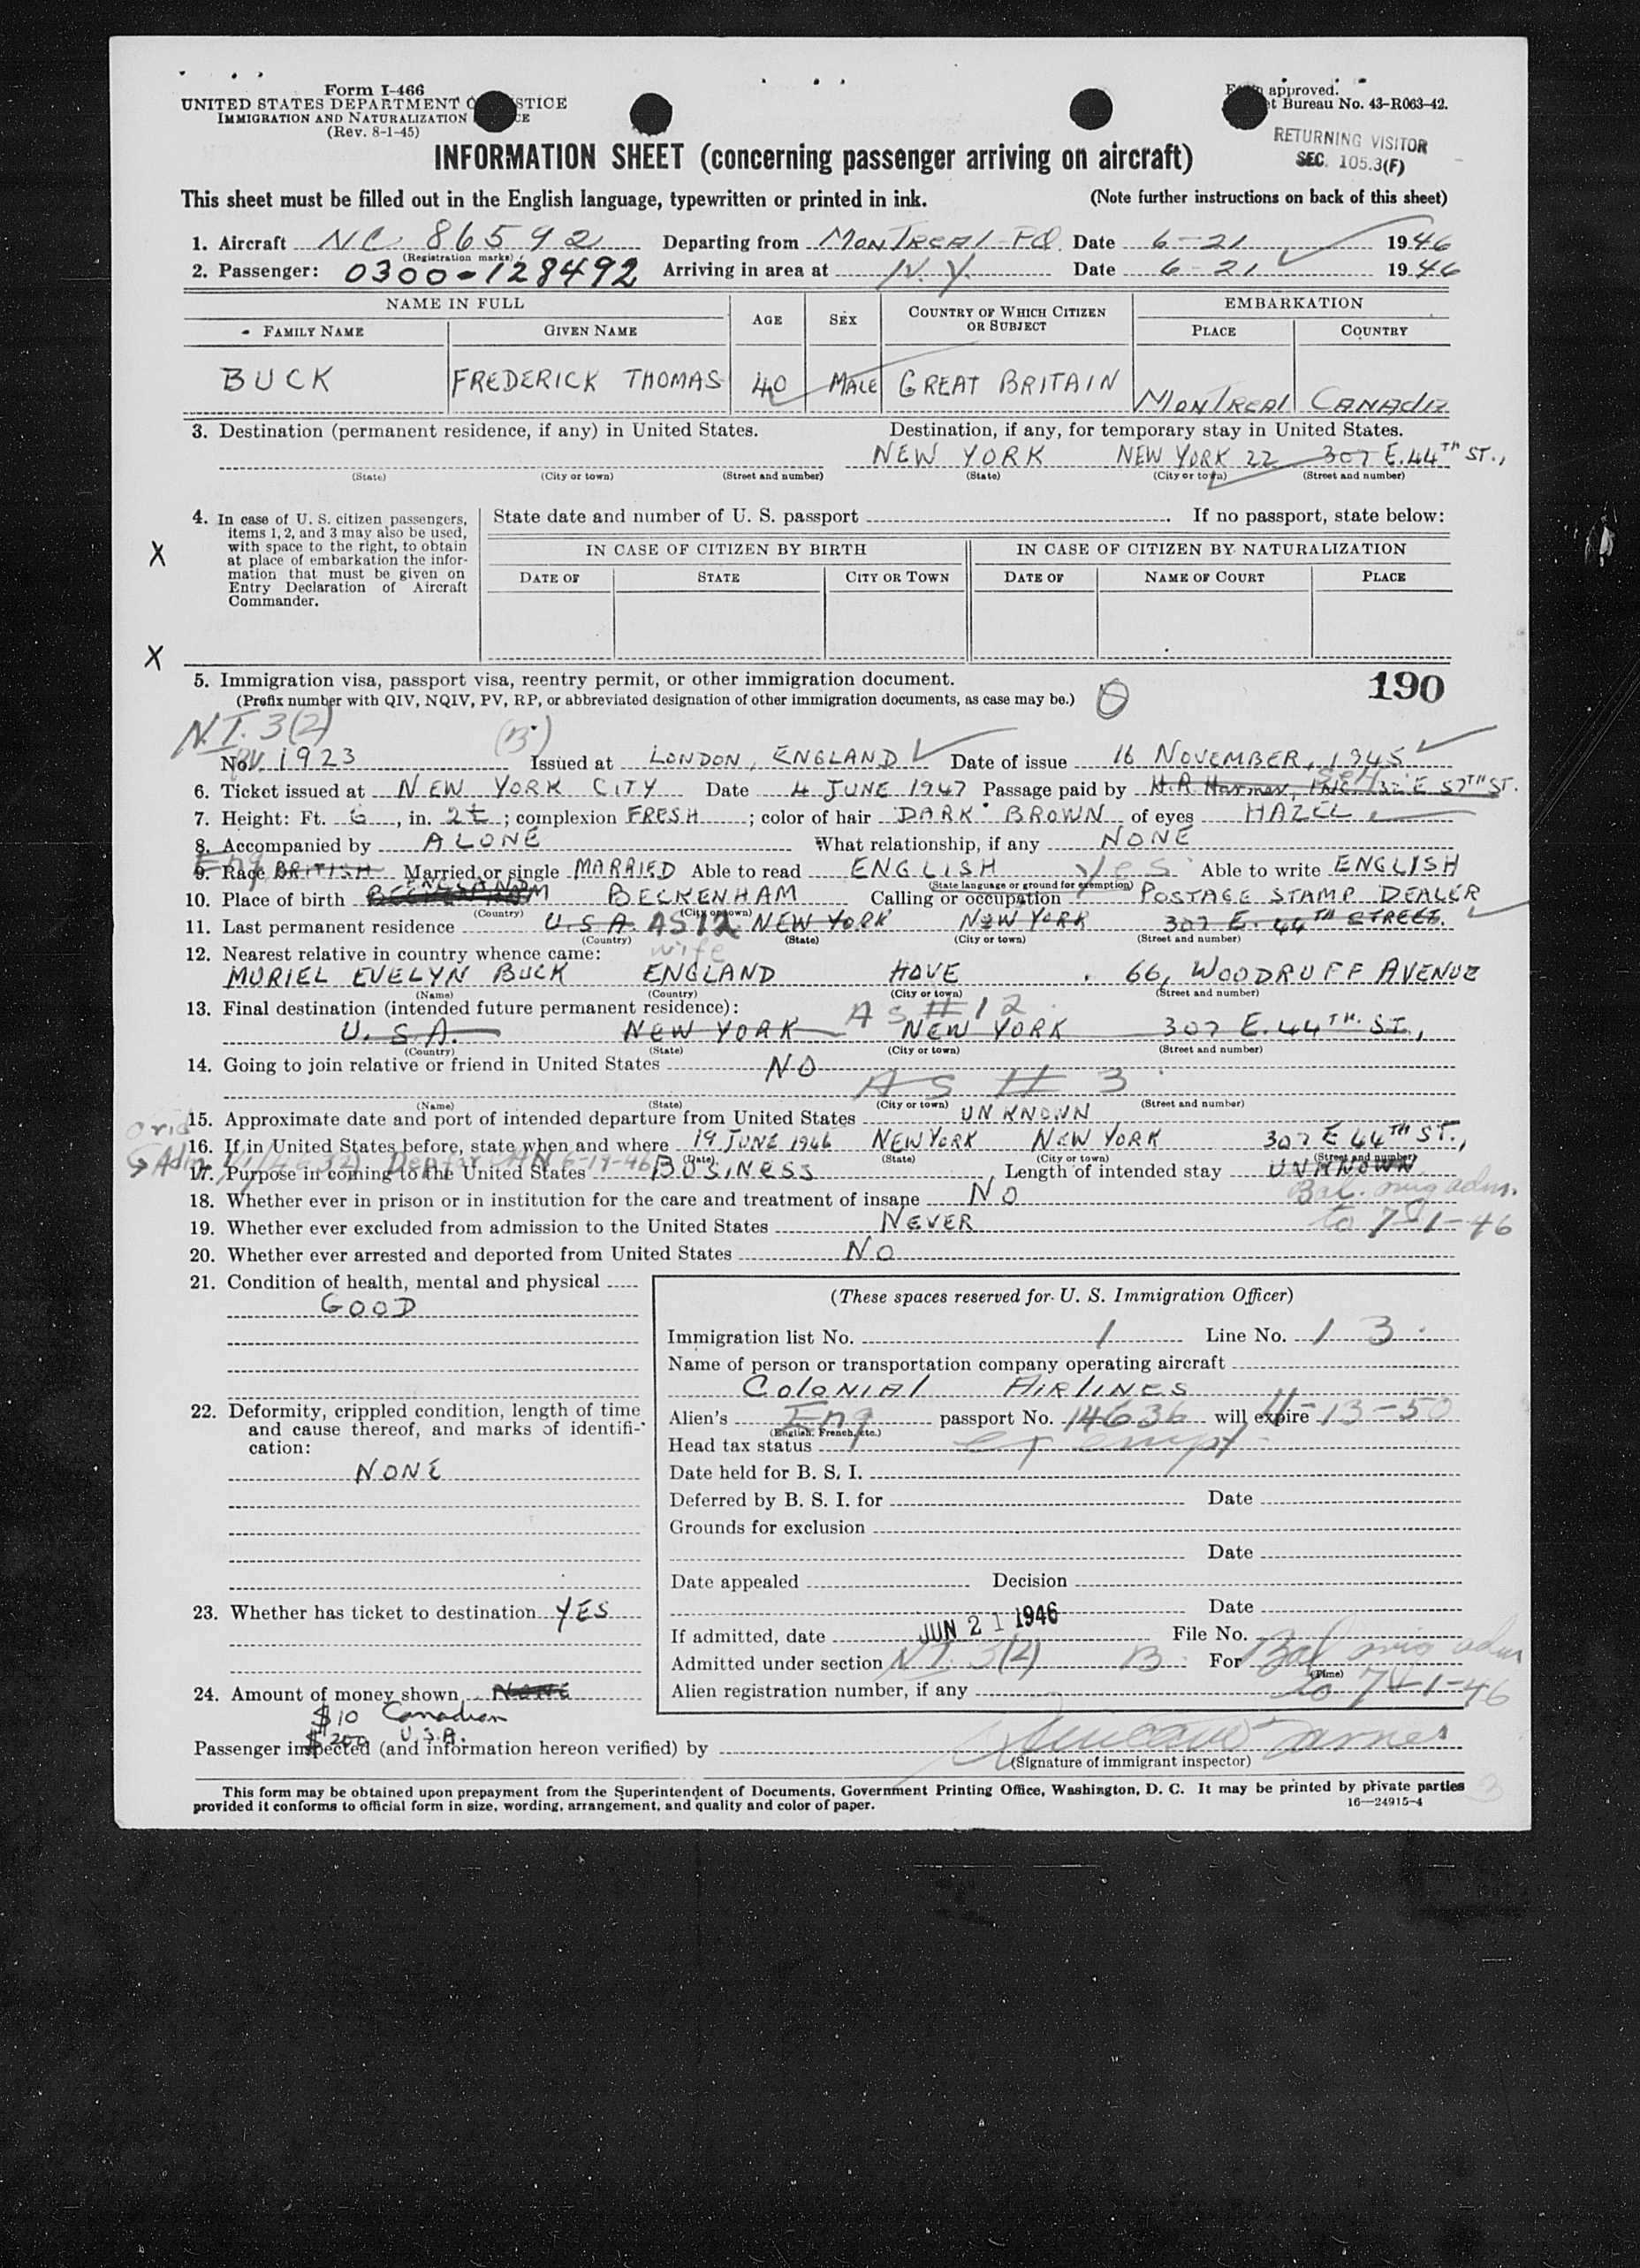 Form I-466
UNITED STATES DEPARTMENT O STICE
IMMIGRATION AND NATURALIZATION CE
(Rev. 8-1-45)
approved.
t Bureau No. 43-R063-42.
RETURNING VISITOR
SEC. 105.3(F)
INFORMATION SHEET (concerning passenger arriving on aircraft)
This sheet must be filled out in the English language, typewritten or printed in ink. (Note further instructions on back of this sheet)
1. Aircraft NC 86592 Departing from MONTREAL PQ Date 6-21 1946
(Registration marks)
2. Passenger: 0300-128492 Arriving in area at N.Y. Date 6-21 1946
NAME IN FULL AGE SEX COUNTRY OF WHICH CITIZEN OR SUBJECT EMBARKATION
FAMILY NAME GIVEN NAME PLACE COUNTRY
BUCK FREDERICK THOMAS 40 MALE GREAT BRITAIN MONTREAL CANADA
3. Destination (permanent residence, if any) in United States. Destination, if any, for temporary stay in United States.
NEW YORK NEW YORK 22 307 E. 44TH ST.,
(State) (City or town) (Street and number) (State) (City or town) (Street and number)
4. In case of U. S. citizen passengers, items 1, 2, and 3 may also be used, with space to the right, to obtain at place of embarkation the information that must be given on Entry Declaration of Aircraft Commander.
X
X
State date and number of U. S. passport . If no passport, state below:
IN CASE OF CITIZEN BY BIRTH IN CASE OF CITIZEN BY NATURALIZATION
DATE OF STATE CITY OR TOWN DATE OF NAME OF COURT PLACE
5. Immigration visa, passport visa, reentry permit, or other immigration document. 190
(Prefix number with QIV, NQIV, PV, RP, or abbreviated designation of other immigration documents, as case may be.)
N.T. 3(2) (B)
No. PV. 1923 Issued at LONDON, ENGLAND Date of issue 16 NOVEMBER, 1945
6. Ticket issued at NEW YORK CITY Date 4 JUNE 1947 Passage paid by H.R. Harmer, Inc. 32 E 57TH ST. Self
7. Height: Ft. 6, in. 2½; complexion FRESH; color of hair DARK BROWN of eyes HAZEL
8. Accompanied by ALONE What relationship, if any NONE
9. Race BRITISH Eng Married or single MARRIED Able to read ENGLISH Yes Able to write ENGLISH
(State language or ground for exemption)
10. Place of birth ENGLAND BECKENHAM Calling or occupation POSTAGE STAMP DEALER
(Country) (City or town)
11. Last permanent residence U.S.A. AS 12 NEW YORK NEW YORK 307 E. 44TH STREET.
(Country) (State) (City or town) (Street and number)
12. Nearest relative in country whence came: wife
MURIEL EVELYN BUCK ENGLAND HOVE 66, WOODRUFF AVENUE
(Name) (Country) (City or town) (Street and number)
13. Final destination (intended future permanent residence): AS # 12
U.S.A. NEW YORK NEW YORK 307 E. 44TH. ST.,
(Country) (State) (City or town) (Street and number)
14. Going to join relative or friend in United States NO
AS # 3
(Name) (State) (City or town) (Street and number)
15. Approximate date and port of intended departure from United States UNKNOWN
16. If in United States before, state when and where 19 JUNE 1946 NEW YORK NEW YORK 307 E 44TH ST.,
(Date) (State) (City or town) (Street and number)
17. Purpose in coming to the United States BUSINESS Length of intended stay UNKNOWN
Bal. orig adm.
to 7-1-46
18. Whether ever in prison or in institution for the care and treatment of insane NO
19. Whether ever excluded from admission to the United States NEVER
20. Whether ever arrested and deported from United States NO
21. Condition of health, mental and physical
GOOD
22. Deformity, crippled condition, length of time and cause thereof, and marks of identification:
NONE
23. Whether has ticket to destination YES
24. Amount of money shown NONE
$10 Canadian
$200 U.S.A.
(These spaces reserved for U. S. Immigration Officer)
Immigration list No. 1 Line No. 13
Name of person or transportation company operating aircraft
COLONIAL AIRLINES
Alien's Eng passport No. 14636 will expire 11-13-50
(English, French, etc.)
Head tax status exempt
Date held for B. S. I.
Deferred by B. S. I. for Date
Grounds for exclusion
Date
Date appealed Decision
Date
If admitted, date JUN 21 1946 File No.
Admitted under section N.T. 3(2) B For Bal orig adm
(Time)
Alien registration number, if any to 7-1-46
Passenger inspected (and information hereon verified) by
(Signature of immigrant inspector)
This form may be obtained upon prepayment from the Superintendent of Documents, Government Printing Office, Washington, D. C. It may be printed by private parties
provided it conforms to official form in size, wording, arrangement, and quality and color of paper. 16—24915-4